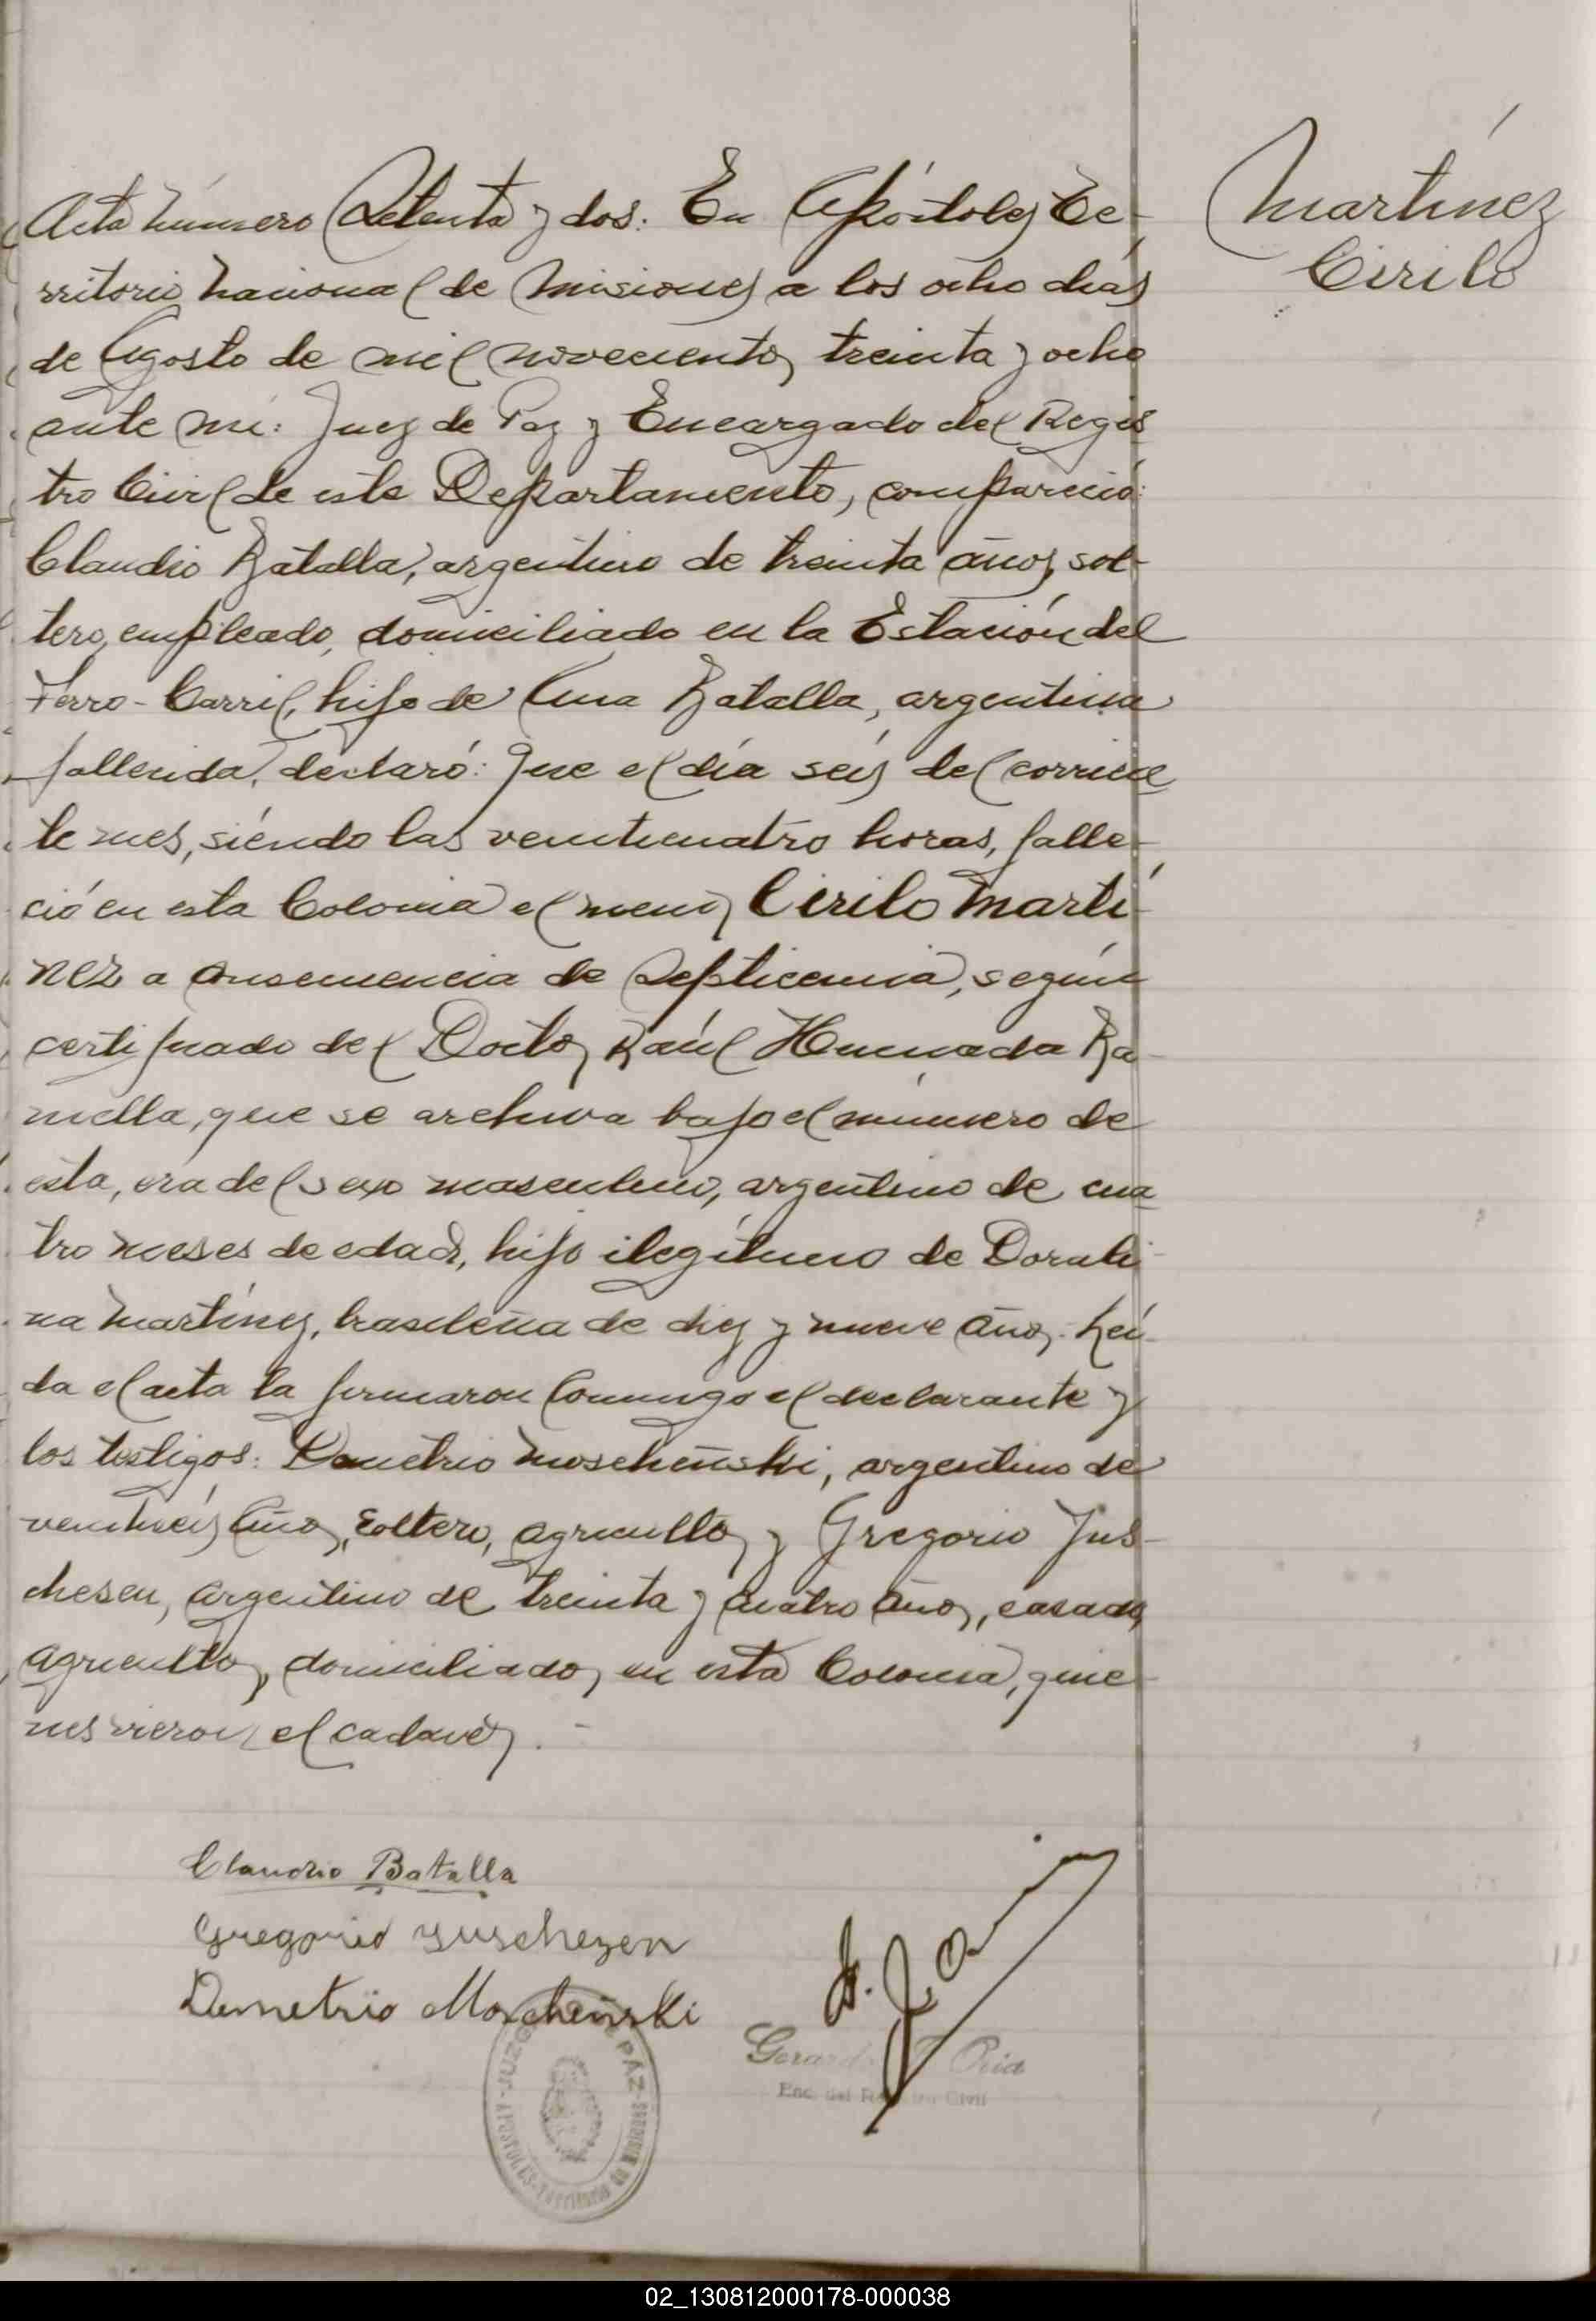 Martínez
Cirilo
Acta número Setenta y dos: En Apóstoles Te-
rritorio Nacional de Misiones a los ocho días
de Agosto de mil novecientos treinta y ocho
ante mí: Juez de Paz y Encargado del Regis
tro Civil de este Departamento, compareció:
Claudio Batalla, argentino de treinta años, sol-
tero, empleado, domiciliado en la Estación del
Ferro-Carril, hijo de Ana Batalla, argentina
fallecida, declaró: Que el día seis del corrien
te mes, siéndo las venticuatro horas, falle-
ció en esta Colonia el menor Cirilo Marti-
nez a consecuencia de Septicemia, según
certificado del Doctor Raúl Ra-
mella, que se archiva bajo el número de
esta, era del sexo masculino, argentino de cua
tro meses de edad, hijo ilegítimo de Dorali-
na Martínez, brasileña de diez y nueve años. Leí-
da el acta la firmaron Conmigo el declarante y
los testigos: Demetrio Moscheñski, argentino de
ventiseis años, soltero, agricultor y Gregorio Jus-
chesen, argentino de treinta y cuatro años, casado,
agricultor, domiciliados en esta Colonia, quie-
nes vieron el cadaver. -
Claudio Batalla
Gregorio Juschezen
Demetrio Moscheñski
JUZGADO DE PAZ
APOSTOLES - TERRITORIO DE MISIONES
Gerardo Pría
Enc. del Registro Civil
02_130812000178-000038